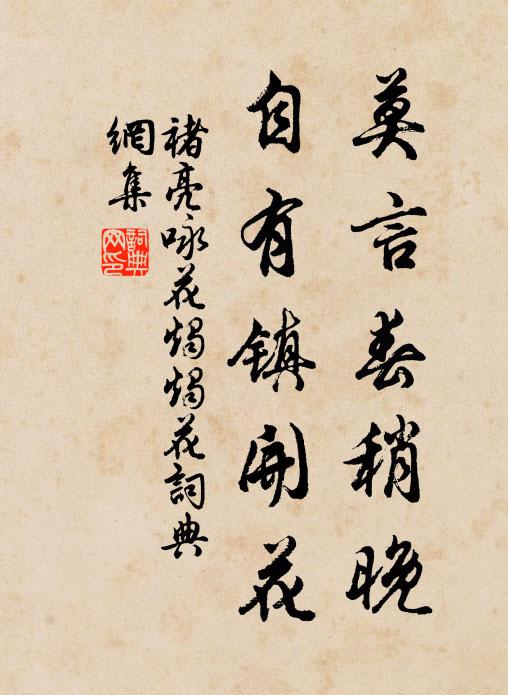 莫言春稍晚
自有鎮開花
褚亮咏花燭燭花詞典
網集
詞典
网印